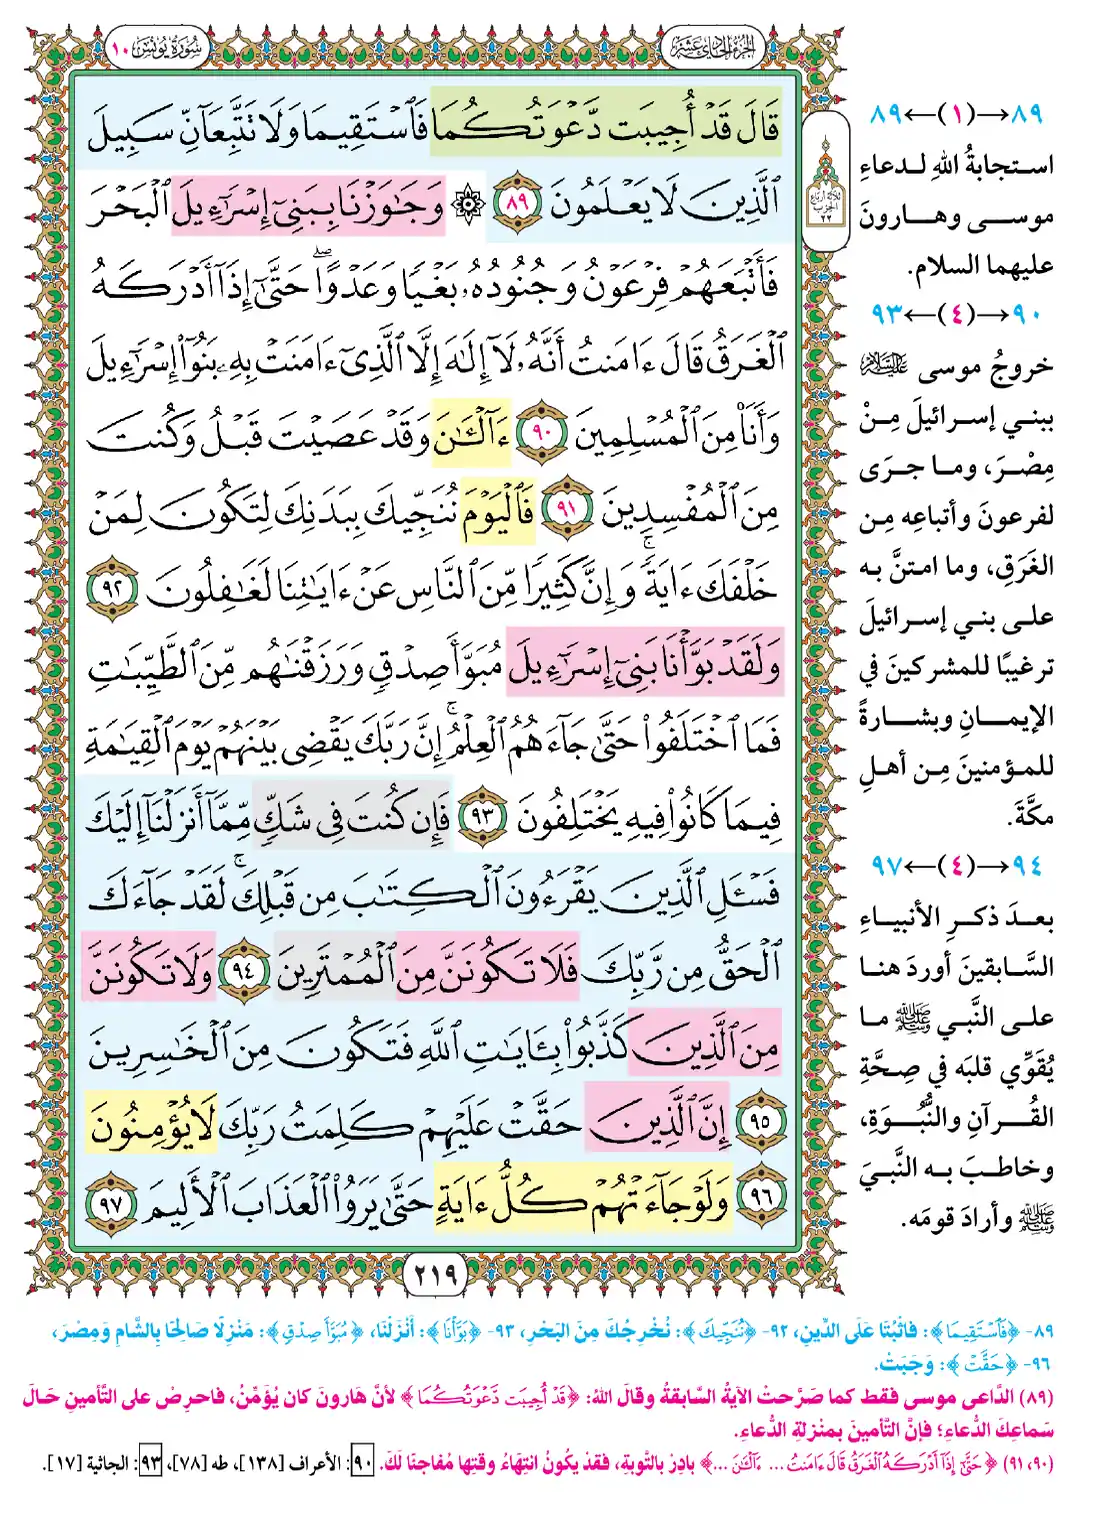 الجزء الحادي عشر
سورة يونس ١٠
قَالَ قَدۡ أُجِيبَت دَّعۡوَتُكُمَا فَٱسۡتَقِيمَا وَلَا تَتَّبِعَآنِّ سَبِيلَ
ٱلَّذِينَ لَا يَعۡلَمُونَ ٨٩ ۞ وَجَٰوَزۡنَا بِبَنِيٓ إِسۡرَٰٓءِيلَ ٱلۡبَحۡرَ
فَأَتۡبَعَهُمۡ فِرۡعَوۡنُ وَجُنُودُهُۥ بَغۡيٗا وَعَدۡوًاۖ حَتَّىٰٓ إِذَآ أَدۡرَكَهُ
ٱلۡغَرَقُ قَالَ ءَامَنتُ أَنَّهُۥ لَآ إِلَٰهَ إِلَّا ٱلَّذِيٓ ءَامَنَتۡ بِهِۦ بَنُوٓاْ إِسۡرَٰٓءِيلَ
وَأَنَا۠ مِنَ ٱلۡمُسۡلِمِينَ ٩٠ ءَآلۡـَٰٔنَ وَقَدۡ عَصَيۡتَ قَبۡلُ وَكُنتَ
مِنَ ٱلۡمُفۡسِدِينَ ٩١ فَٱلۡيَوۡمَ نُنَجِّيكَ بِبَدَنِكَ لِتَكُونَ لِمَنۡ
خَلۡفَكَ ءَايَةٗۚ وَإِنَّ كَثِيرٗا مِّنَ ٱلنَّاسِ عَنۡ ءَايَٰتِنَا لَغَٰفِلُونَ ٩٢
وَلَقَدۡ بَوَّأۡنَا بَنِيٓ إِسۡرَٰٓءِيلَ مُبَوَّأَ صِدۡقٖ وَرَزَقۡنَٰهُم مِّنَ ٱلطَّيِّبَٰتِ
فَمَا ٱخۡتَلَفُواْ حَتَّىٰ جَآءَهُمُ ٱلۡعِلۡمُۚ إِنَّ رَبَّكَ يَقۡضِي بَيۡنَهُمۡ يَوۡمَ ٱلۡقِيَٰمَةِ
فِيمَا كَانُواْ فِيهِ يَخۡتَلِفُونَ ٩٣ فَإِن كُنتَ فِي شَكّٖ مِّمَّآ أَنزَلۡنَآ إِلَيۡكَ
فَسۡـَٔلِ ٱلَّذِينَ يَقۡرَءُونَ ٱلۡكِتَٰبَ مِن قَبۡلِكَۚ لَقَدۡ جَآءَكَ
ٱلۡحَقُّ مِن رَّبِّكَ فَلَا تَكُونَنَّ مِنَ ٱلۡمُمۡتَرِينَ ٩٤ وَلَا تَكُونَنَّ
مِنَ ٱلَّذِينَ كَذَّبُواْ بِـَٔايَٰتِ ٱللَّهِ فَتَكُونَ مِنَ ٱلۡخَٰسِرِينَ
٩٥ إِنَّ ٱلَّذِينَ حَقَّتۡ عَلَيۡهِمۡ كَلِمَتُ رَبِّكَ لَا يُؤۡمِنُونَ
٩٦ وَلَوۡ جَآءَتۡهُمۡ كُلُّ ءَايَةٍ حَتَّىٰ يَرَوُاْ ٱلۡعَذَابَ ٱلۡأَلِيمَ ٩٧
٢١٩
ثلاثة أرباع
الحزب
٢٢
٨٩←(١)→٨٩
استجابةُ اللهِ لـدعاءِ
موسى وهارونَ
عليهما السلام.
٩٠←(٤)→٩٣
خروجُ موسى عليه السلام
ببني إسرائيلَ مِنْ
مِصْرَ، وما جرَى
لفرعونَ وأتباعِه مِن
الغَرَقِ، وما امتنَّ به
على بني إسرائيلَ
ترغيبًا للمشركينَ في
الإيمانِ وبشارةً
للمؤمنينَ مِن أهلِ
مكَّةَ.
٩٤←(٤)→٩٧
بعدَ ذكرِ الأنبياءِ
السَّابقينَ أوردَ هنا
على النَّبي ﷺ ما
يُقَوِّي قلبَه في صِحَّةِ
القُرآنِ والنُّبُوَةِ،
وخاطبَ به النَّبيَ
ﷺ وأرادَ قومَه.
٨٩- ﴿فَٱسۡتَقِيمَا﴾: فاثْبُتَا عَلَى الدِّينِ، ٩٢- ﴿نُنَجِّيكَ﴾: نُخْرِجُكَ مِنَ البَحْرِ، ٩٣- ﴿بَوَّأۡنَا﴾: أَنْزَلْنَا، ﴿مُبَوَّأَ صِدۡقٖ﴾: مَنْزِلًا صَالِحًا بِالشَّامِ وَمِصْرَ،
٩٦- ﴿حَقَّتۡ﴾: وَجَبَتْ.
(٨٩) الدَّاعي موسى فقط كما صَرَّحتْ الآيةُ السَّابقةُ وقالَ اللهُ: ﴿قَدۡ أُجِيبَت دَّعۡوَتُكُمَا﴾ لأنَّ هَارونَ كان يُؤَمِّنُ، فاحرِصْ على التَّأمينِ حَالَ
سَماعِكَ الدُّعاءِ؛ فإنَّ التَّأمينَ بمنْزلةِ الدُّعاءِ.
(٩٠، ٩١) ﴿حَتَّىٰٓ إِذَآ أَدۡرَكَهُ ٱلۡغَرَقُ قَالَ ءَامَنتُ ... ءَآلۡـَٰٔنَ ...﴾ بادِرْ بالتَّوبةِ، فقدْ يكُونُ انتِهَاءُ وقتِها مُفاجئًا لَكَ. ٩٠: الأعراف [١٣٨]، طه [٧٨]، ٩٣: الجاثية [١٧].